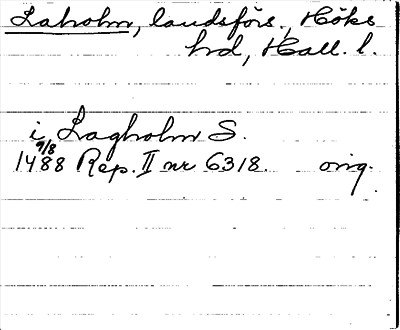 Laholm, landsförs., Höks
hd, Hall. l.
i Lagholm S.
9/8
1488 Rep. II nr 6318. orig.